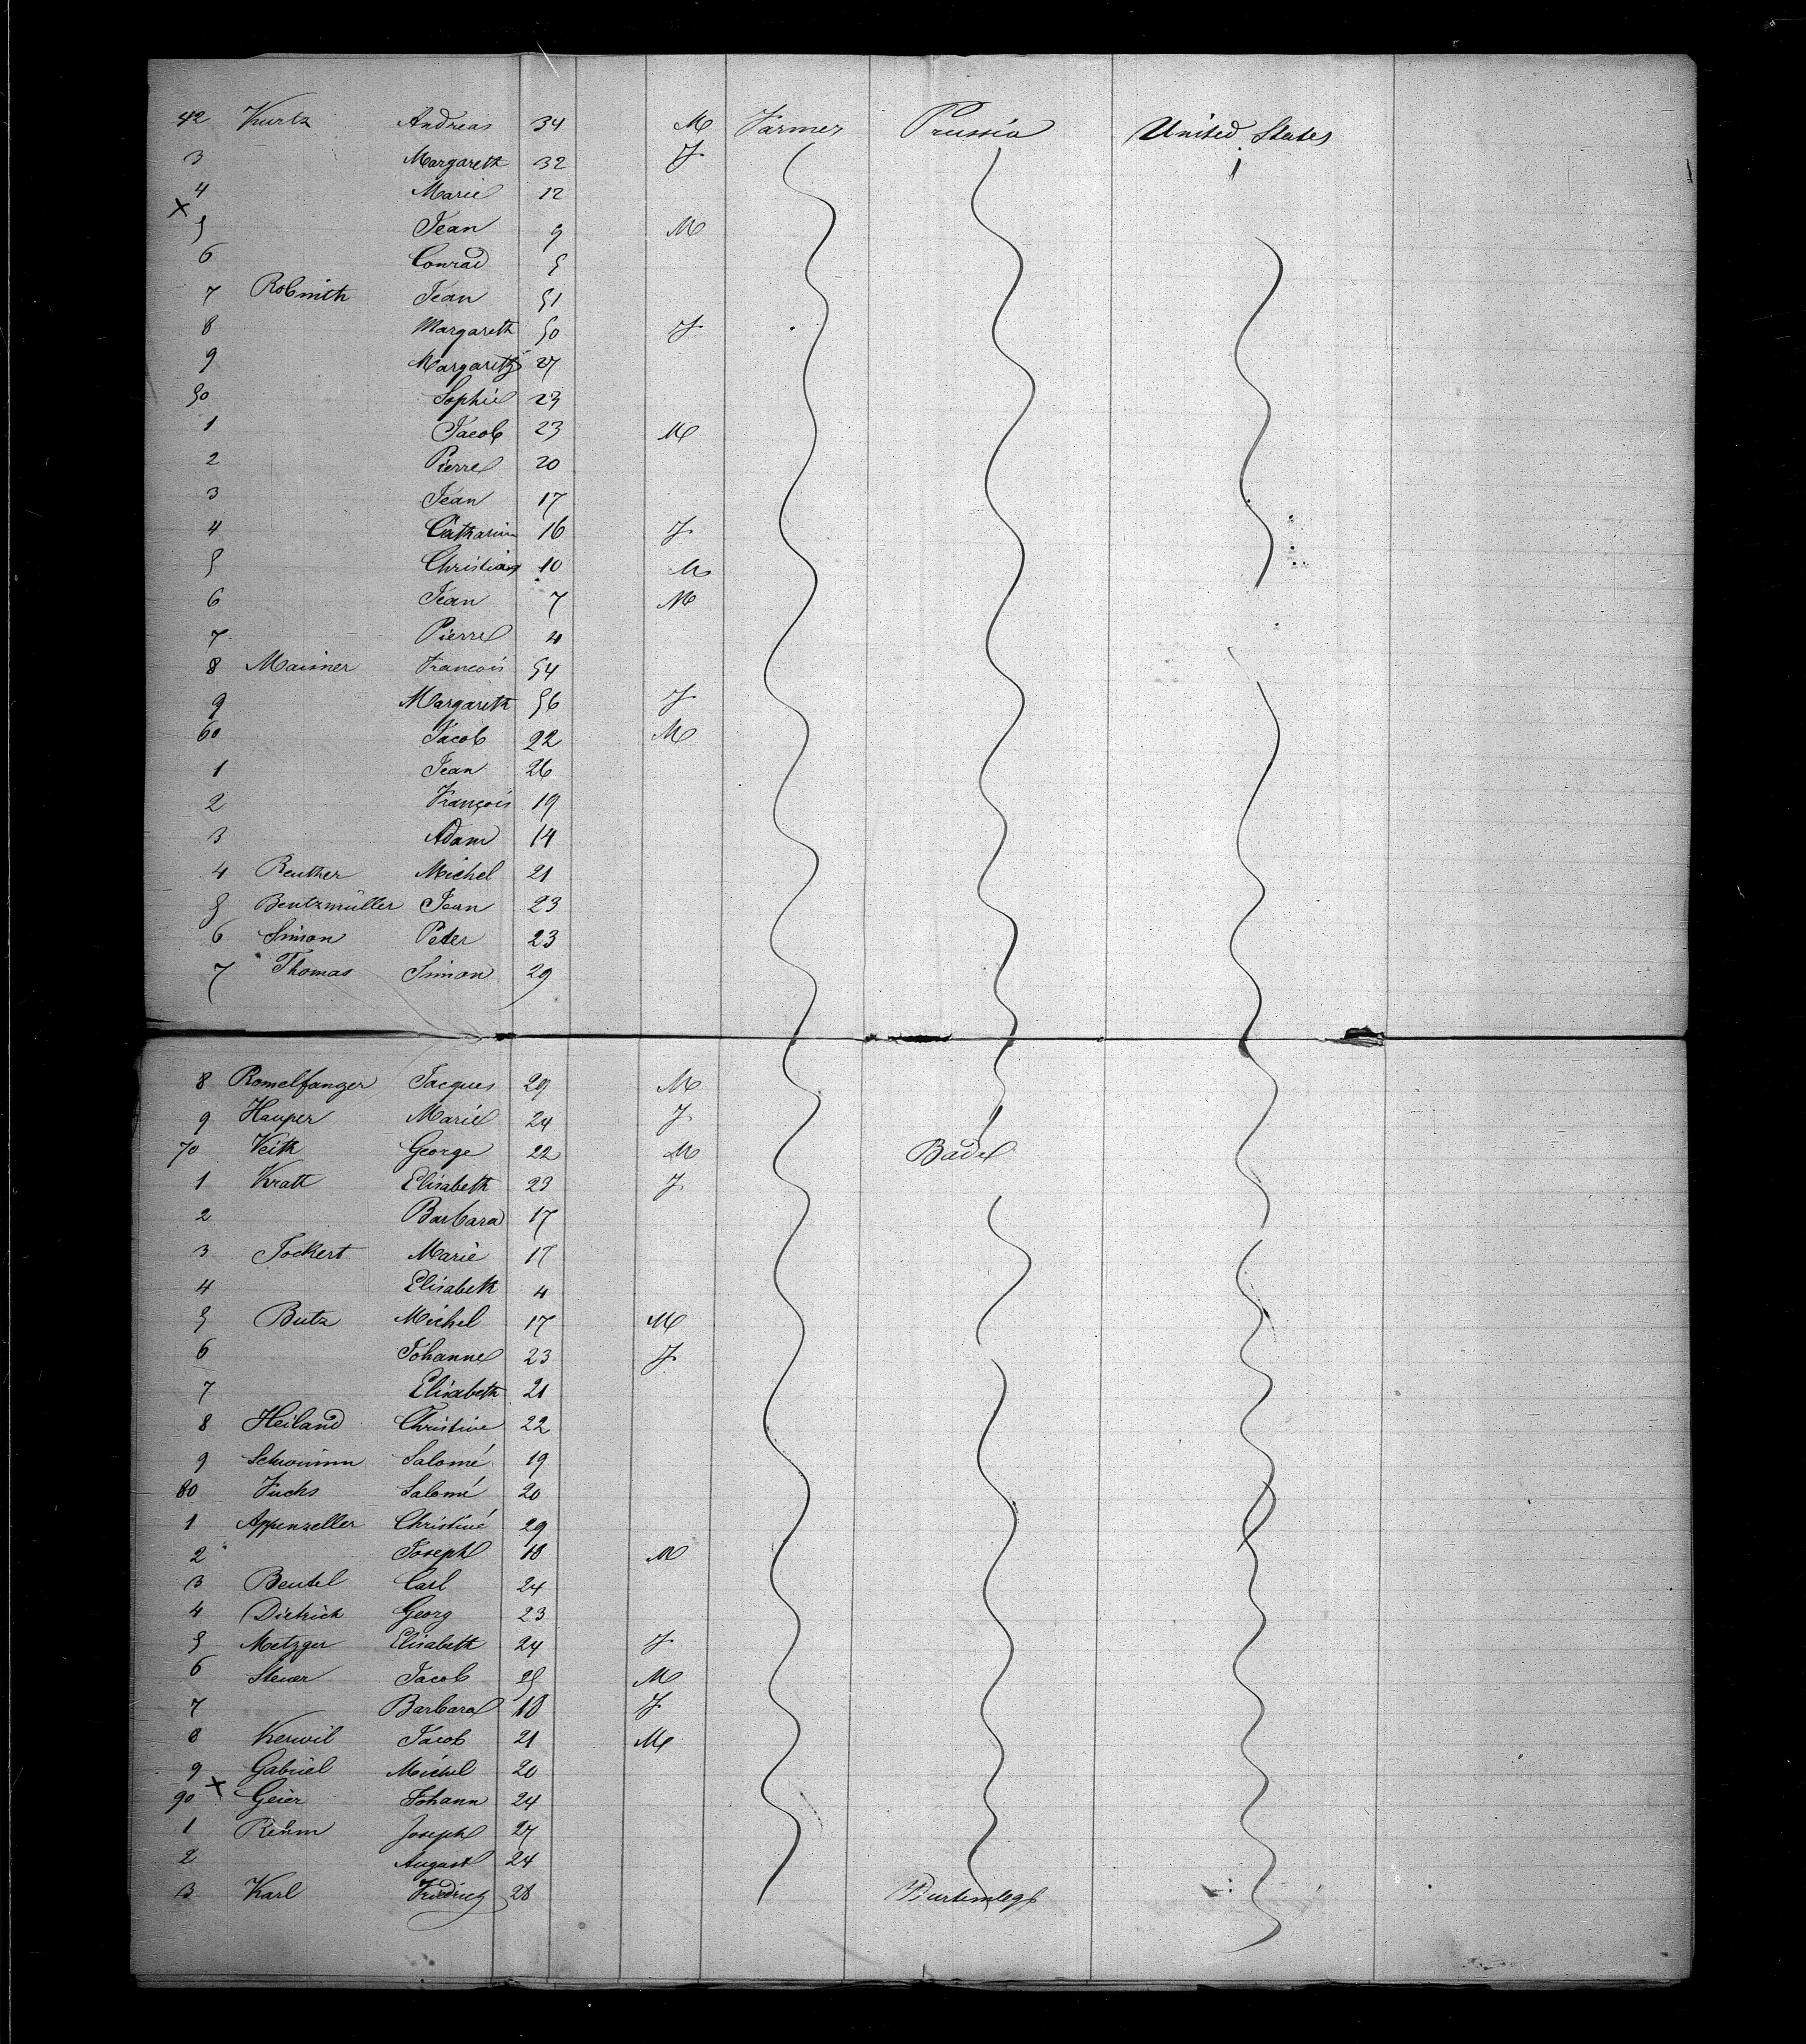 42 Kurtz Andreas 34 M Farmer Prussia United States
3 Margareth 32 F
4 Marie 12
X
5 Jean 9 M
6 Conrad 5
7 Robmith Jean 51
8 Margareth 50 F
9 27
50 Sophie 23
1 Jacob 23 M
2 Pierre 20
3 Jean 17
4 Catharina 16 F
5 Christian 10 M
6 Jean 7 M
7 Pierre 4
8 Maisner Francois 54
9 Margareth 56 F
60 Jacob 22 M
1 Jean 26
2 François 19
3 Adam 14
4 Reuther Michel 21
5 Bentzmüller Jean 23
6 Simon Peter 23
7 Thomas Simon 29
8 Romelfanger Jacques 29 M
9 Hauper Marie 24 F
70 Veith George 22 M Bade
1 Kratt Elisabeth 23 F
2 Barbara 17
3 Jockert Marie 17
4 Elisabeth 4
5 Butz Michel 17 M
6 Johanne 23 F
7 Elisabeth 21
8 Heiland Christine 22
9 Schwimm Salomé 19
80 Fuchs Salomé 20
1 Appenzeller Christine 29
2 Joseph 18 M
3 Beutel Carl 24
4 Dietrich Georg 23
5 Metzger Elisabeth 24 F
6 Steuer Jacob 25 M
7 Barbara 18 F
8 Kerwil Jacob 21 M
9 Gabriel Michel 20
90 X Geier Johann 24
1 Rehm Joseph 27
2 August 24
3 Karl Friedrich 28